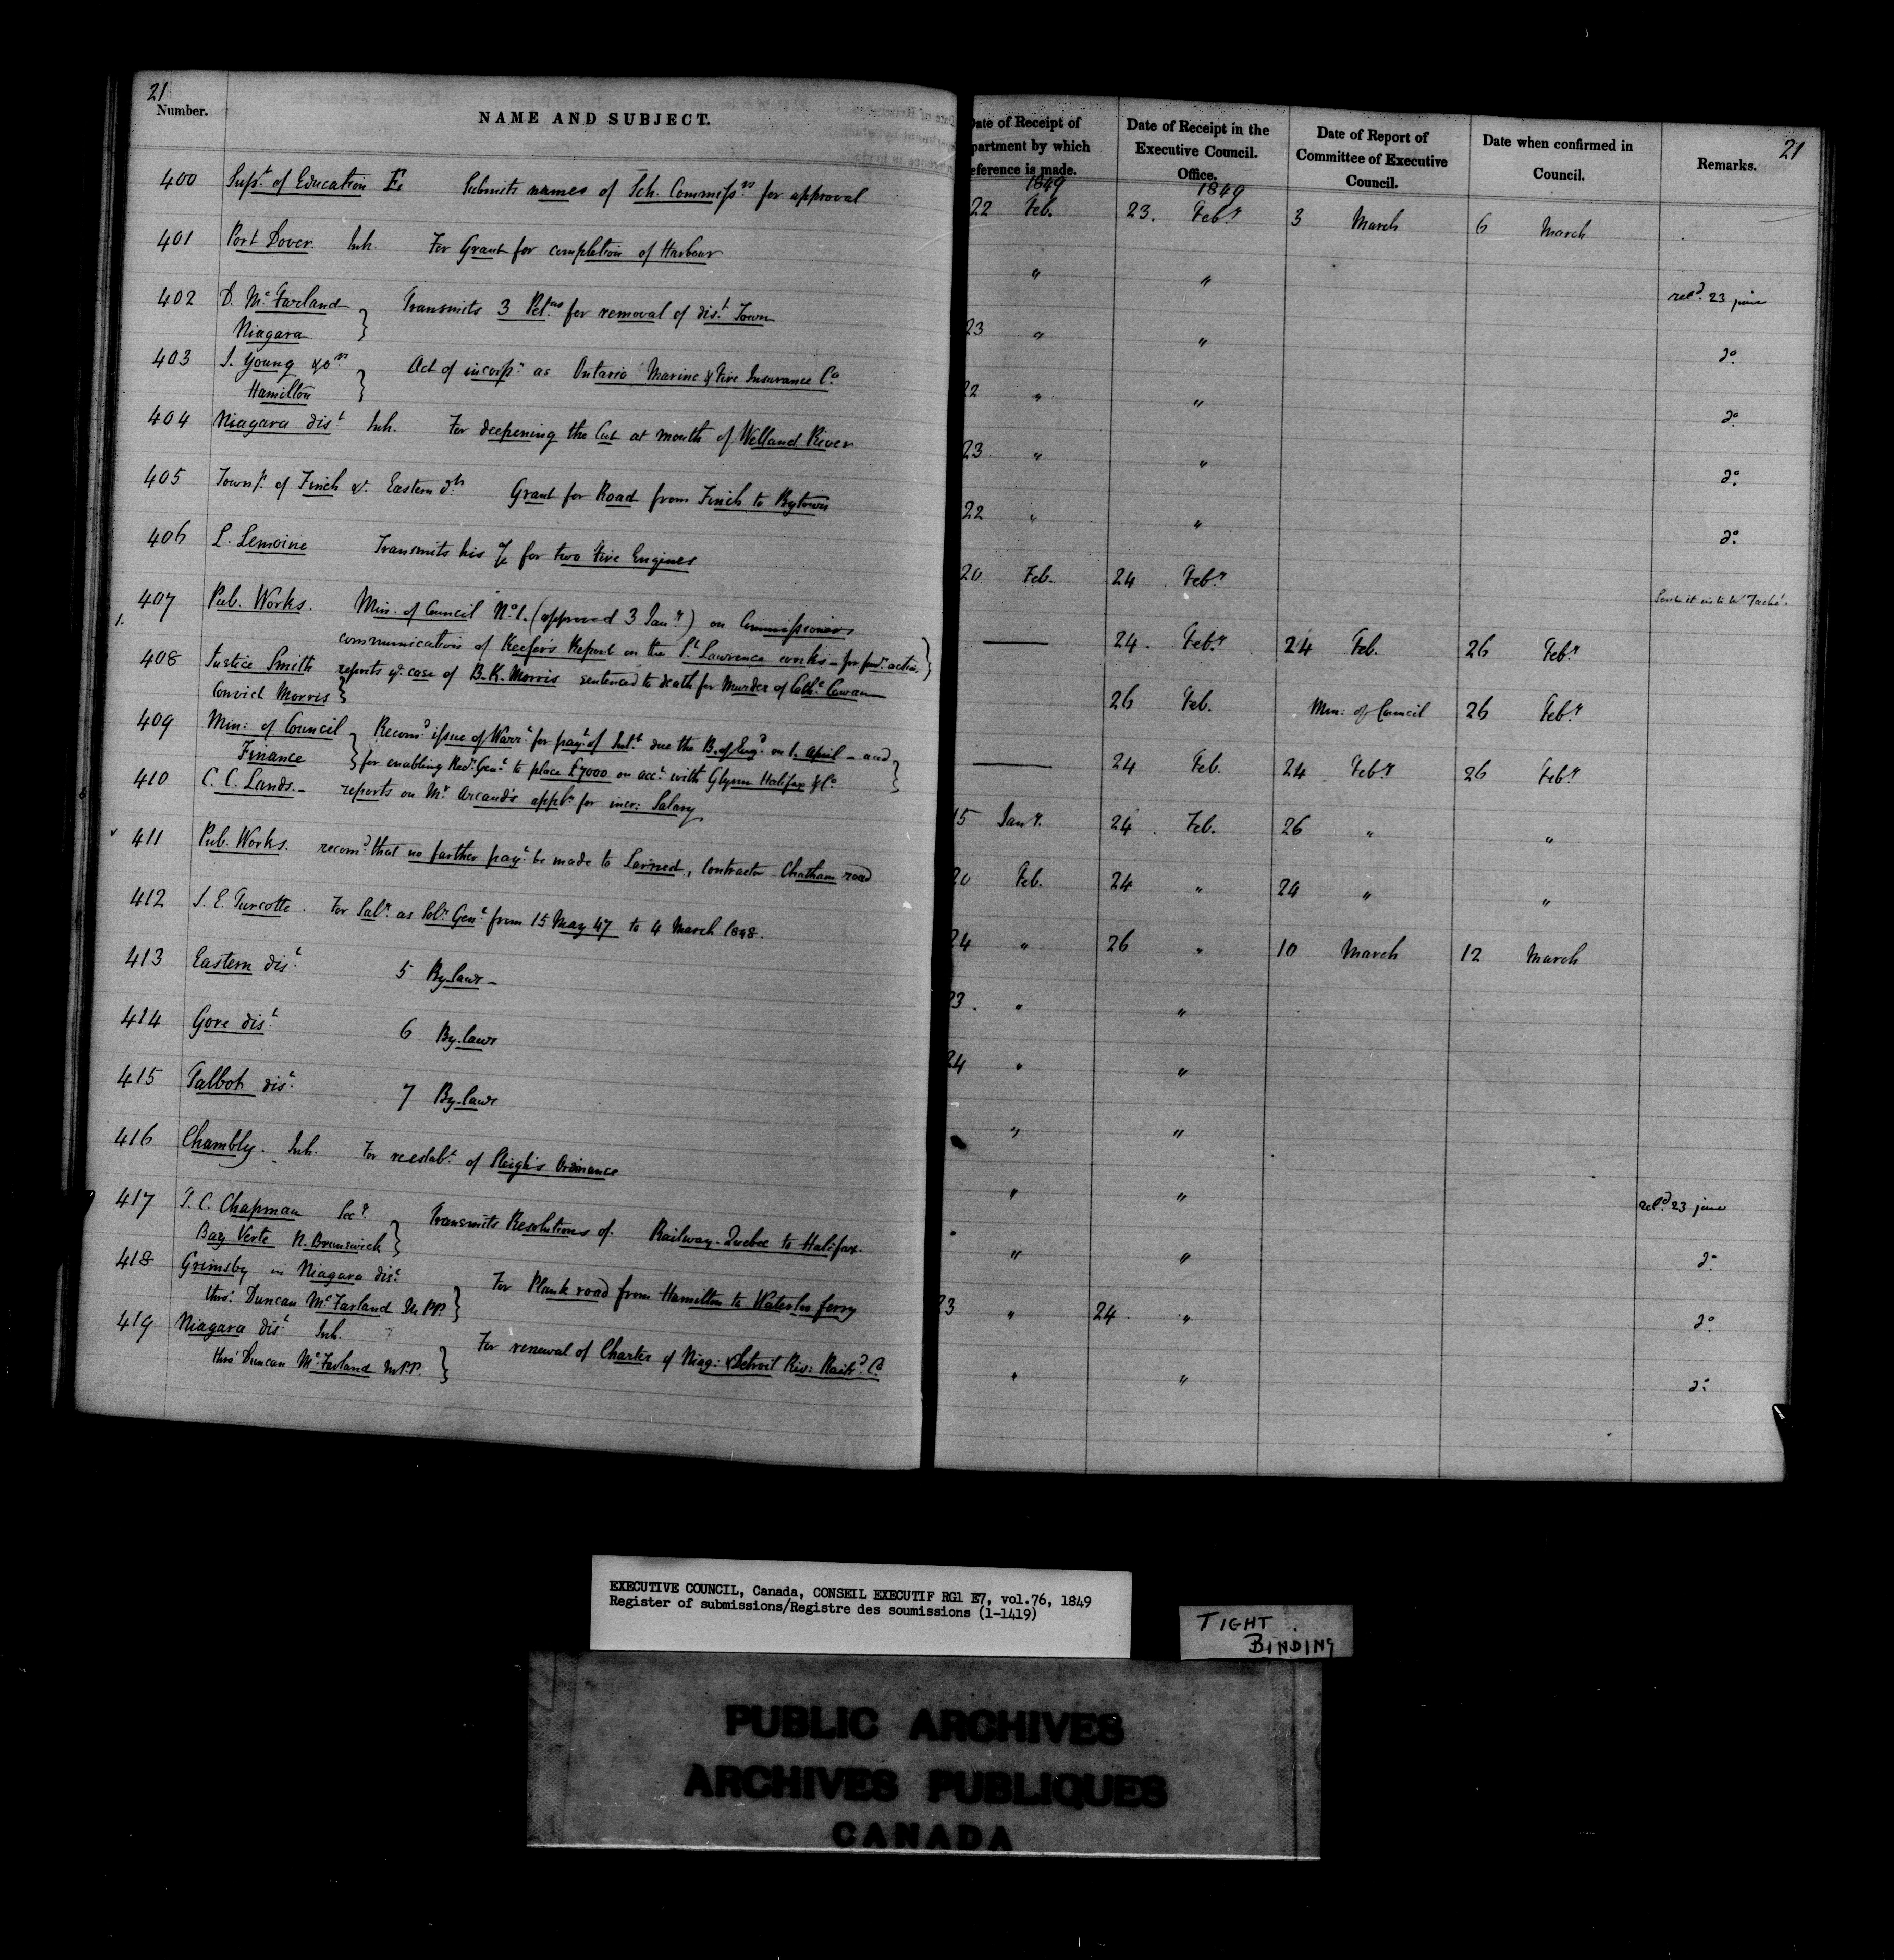 21
Number.
NAME AND SUBJECT.
Date of Receipt of
partment by which
eference is made.
Date of Receipt in the
Executive Council.
Office.
Date of Report of
Committee of Executive
Council.
Date when confirmed in
Council.
Remarks.
21
1849
1849
400 Supt. of Education Submits names of Sch. Commissrs for approval
22 Feb. 23. Feby 3 March 6 March
401 Port Dover. Inh. For Grant for completion of Harbour
" " retd. 23 june
402 D. McFarland } Transmits 3 Petns for removal of dist. Town
Niagara
23 " " do.
403 J. Young & ors } Act of incorpn. as Ontario Marine & Fire Insurance Co.
Hamilton
22 " " do.
404 Niagara dist. Inh. For deepening the Cut at mouth of Welland River
23 " " do.
405 Townp. of Finch &c. Eastern dt. Grant for Road from Finch to Bytown
22 " " do.
406 L. Lemoine Transmits his a/c for two Fire Engines
20 Feb. 24 Feby
407 Pub. Works. Min. of Council No. 1. (approved 3 Jany) on Commissioners
1. communication of Keefer's Report on the St. Lawrence works - for furr. action }
— 24. Feby. 24 Feb. 26 Feby
408 Justice Smith reports &c. case of B. K. Morris sentenced to death for Murder of Cathe. Cowan
Convict Morris }
26 Feb. Min: of Council 26 Feby
409 Min: of Council } Recomd. issue of Warrt. for payt. of Intt. due the B. of Engd. on 1. April - and }
Finance } for enabling Recr. Genl. to place £7000 on acct. with Glynn Halifax & Co.
— 24 Feb. 24 Feby 26 Feby
410 C. C. Lands. - reports on Mr. Arcand's appln. for incr: Salary
15 Jany. 24. Feb. 26 " "
411 Pub. Works. recomd. that no further payt. be made to Larned, Contractor - Chatham road
20 Feb. 24 " 24 " "
412 J. E. Turcotte. For Saly. as Solr. Genl. from 15 May 47 to 4 March 1848.
24 " 26 " 10 March 12 March
413 Eastern dist. 5 By-laws -
23. " "
414 Gore dist. 6 By-laws
24 " "
415 Talbot dist. 7 By-laws
" "
416 Chambly. - Inh. For reestabt. of Sleighs Ordinance
" " retd. 23 june
417 T. C. Chapman Secy. } Transmits Resolutions of. Railway - Quebec to Halifax.
Bay Verte N. Brunswick
" " do.
418 Grimsby in Niagara dist. } For Plank road from Hamilton to Waterloo ferry
thro: Duncan McFarland M.P.P.
23 " 24. " do.
419 Niagara dist. Inh. } For renewal of Charter of Niag: & Detroit Riv: Railrd. Co.
thro' Duncan McFarland M.P.P.
" " do.
EXECUTIVE COUNCIL, Canada, CONSEIL EXECUTIF RG1 E7, vol.76, 1849
Register of submissions/Registre des soumissions (1-1419)
TIGHT
BINDING
PUBLIC ARCHIVES
ARCHIVES PUBLIQUES
CANADA